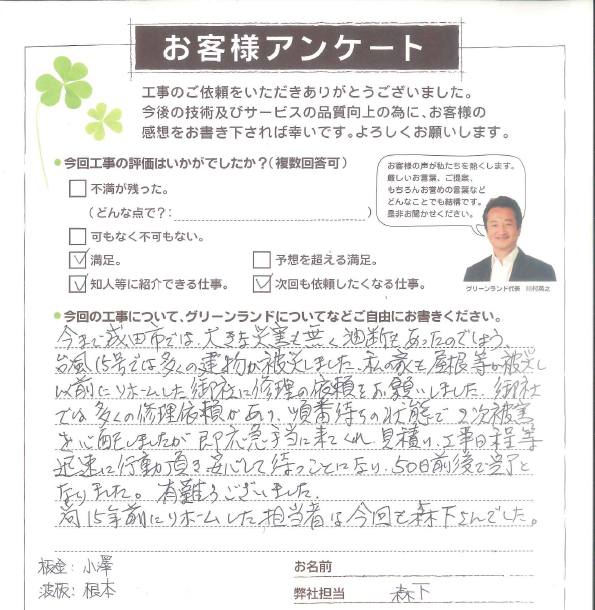 お客様アンケート
工事のご依頼をいただきありがとうございました。
今後の技術及びサービスの品質向上の為に、お客様の
感想をお書き下されば幸いです。よろしくお願いします。
今回工事の評価はいかがでしたか？（複数回答可）
不満が残った。
（どんな点で？：　）
可もなく不可もない。
満足。
予想を超える満足。
知人等に紹介できる仕事。
次回も依頼したくなる仕事。
お客様の声が私たちを熱くします。
厳しいお言葉、ご提案、
もちろんお誉めの言葉など
どんなことでも結構です。
是非お聞かせください。
グリーンランド代表　川村英之
今回の工事について、グリーンランドについてなどご自由にお書きください。
今まで成田市では、大きな災害も無く油断もあったのでしょう、
台風15号では多くの建物が被災しました、私の家も屋根等が被災し
以前にリホームした御社に修理の依頼をお願いしました、御社
では多くの修理依頼があり、順番待ちの状態で2次被害
を心配しましたが即応急手当に来てくれ、見積り、工事日程等
迅速に行動頂き安心して待つことになり、50日前後で完了と
なりました。有難うございました、
尚15年前にリホームした担当者は今回も森下さんでした。
板金：小澤
波板：根本
お名前
弊社担当　森下